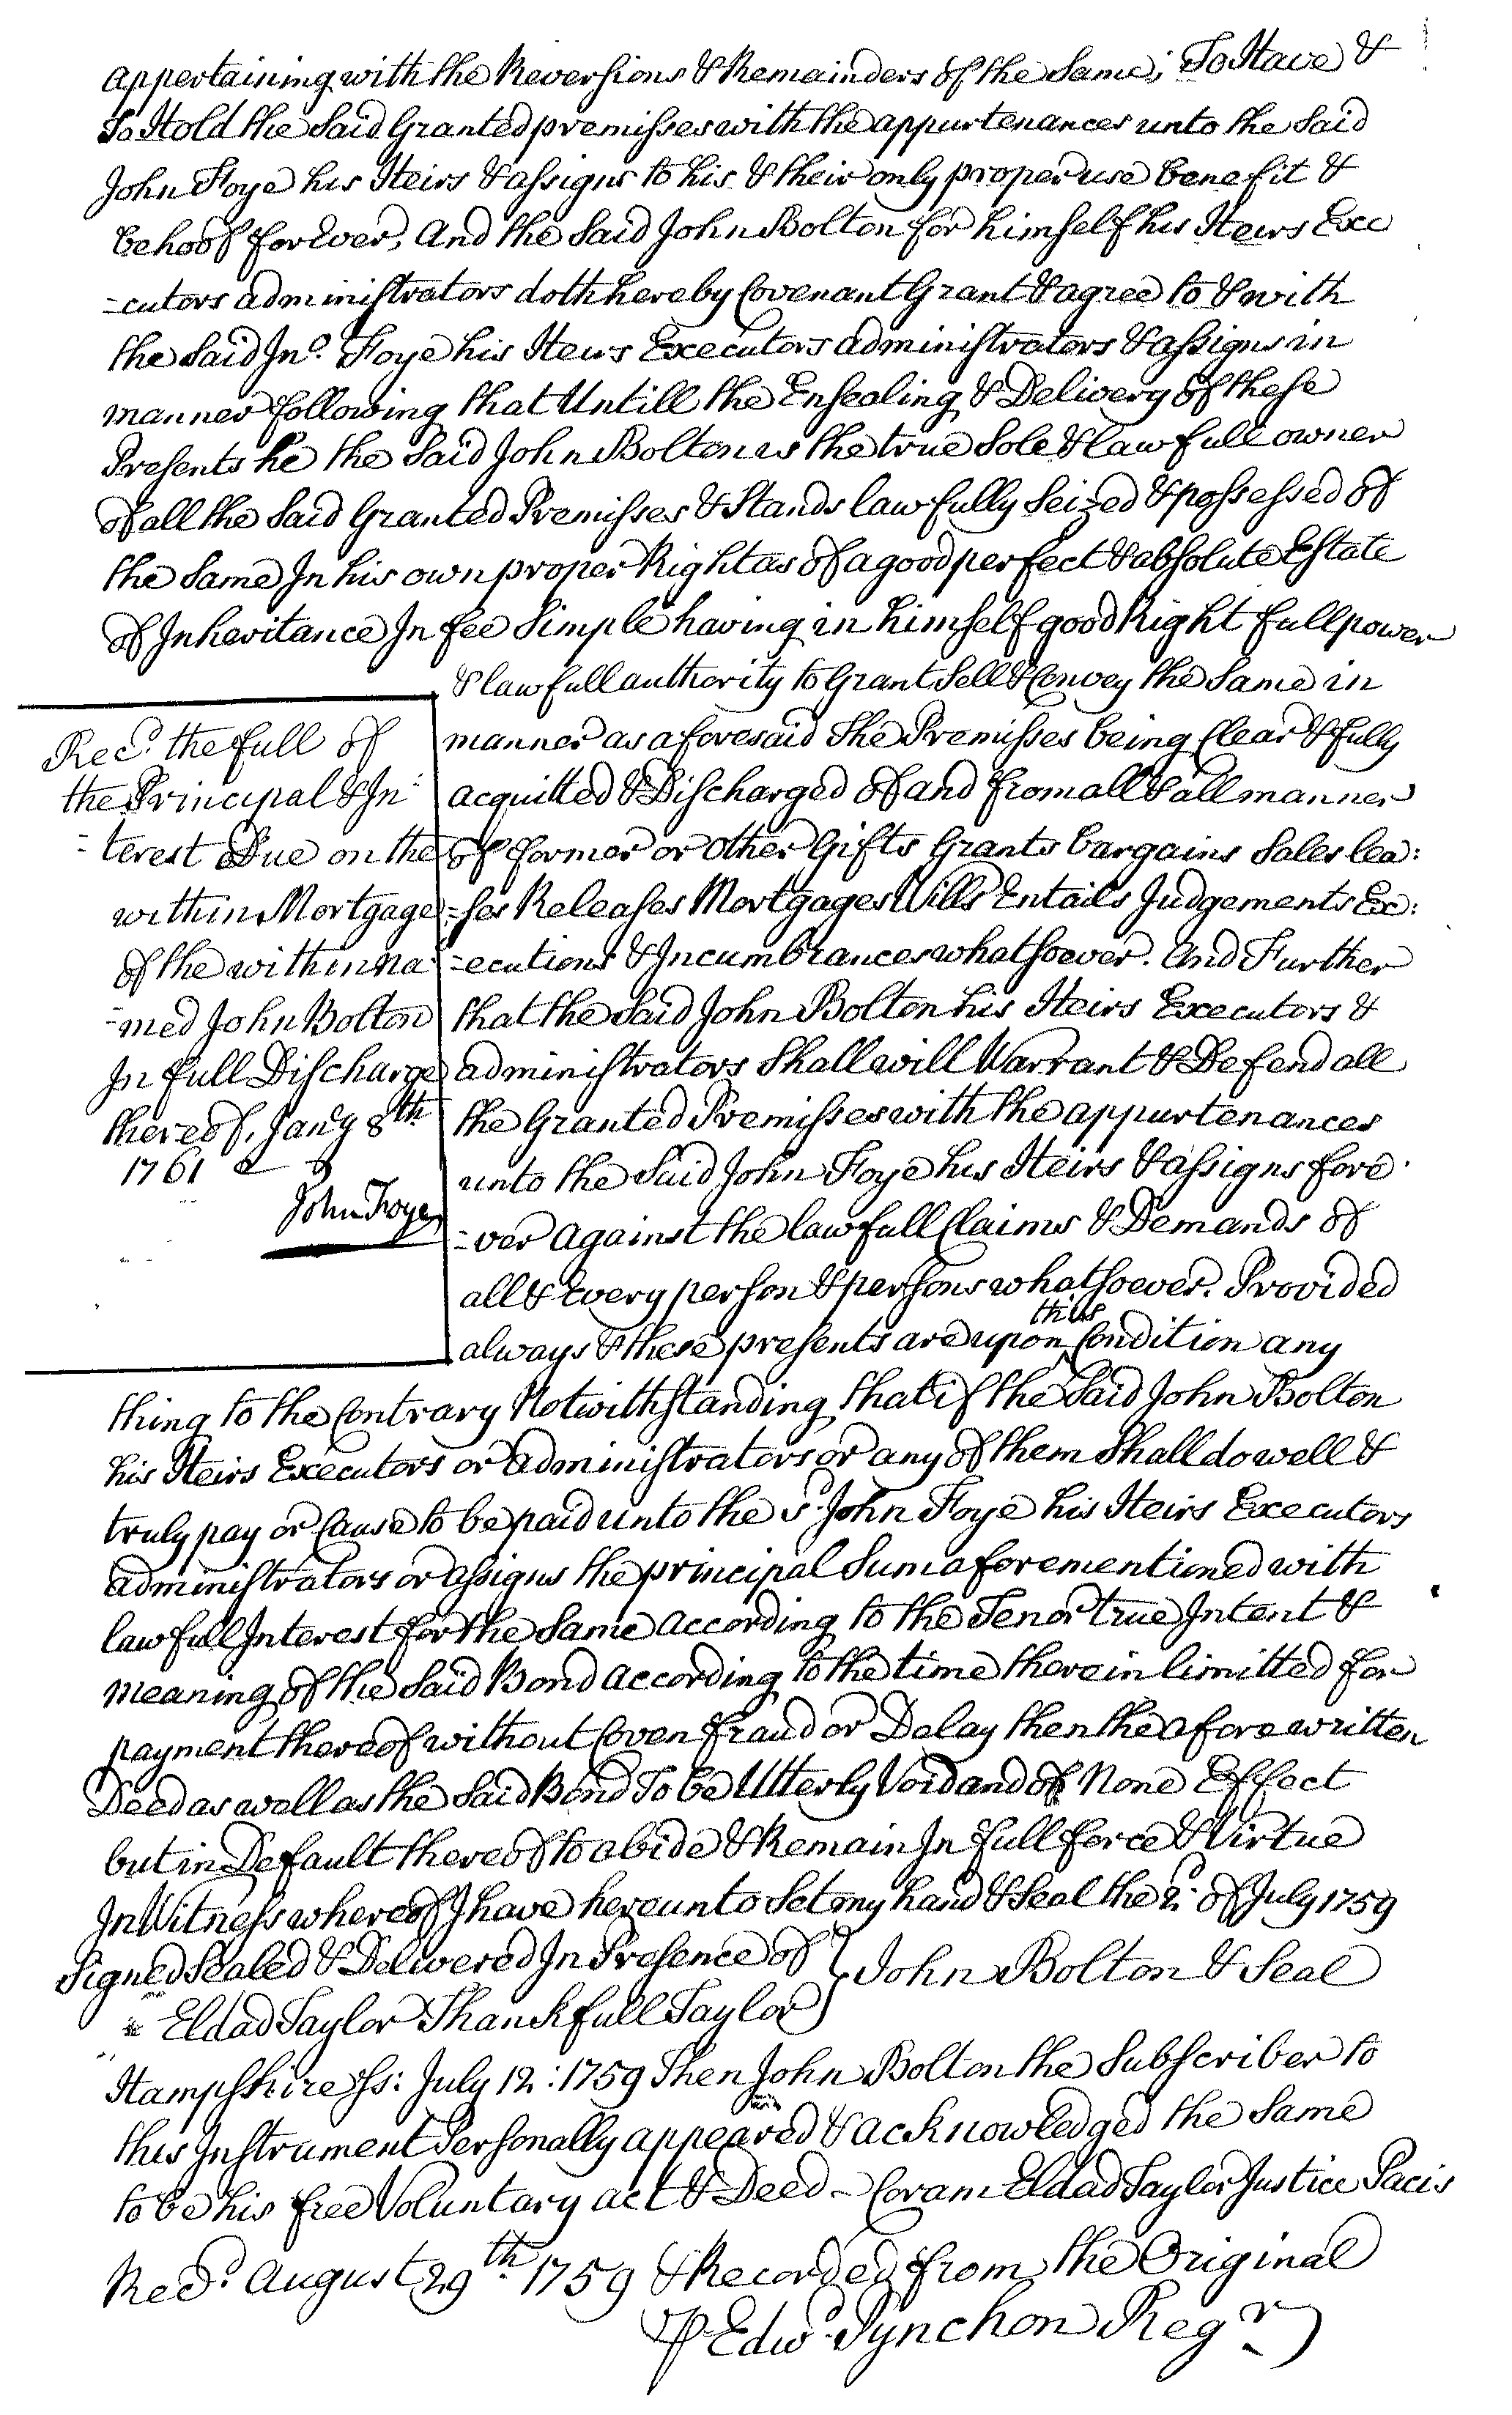 appertaining with the Reversions & Remainders of the Same; To Have &
To Hold the Said Granted premisses with the appurtenances unto the Said
John Foye his Heirs & assigns to his & their only proper use benefit &
behoof forEver, And the Said John Bolton for himself his Heirs Exe
=cutors administrators doth hereby Covenant Grant & agree to & with
the Said Jno. Foye his Heirs Executors administrators & assigns in
manner following that Untill the Ensealing & Delivery of these
Presents he the Said John Bolton is the true Sole & lawfull owner
of all the Said Granted Premisses & Stands lawfully Seized & possessed of
the Same In his own proper Right as of a good perfect & absolute Estate
of Inheritance In fee Simple having in himself good Right full power
& lawfull authority to Grant Sell & Convey the Same in
manner as aforesaid The Premisses being Clear & fully
acquitted & Discharged of and from all & all manner
of former or other Gifts Grants bargains Sales lea:
=ses Releases Mortgages Wills Entails Judgements Ex:
=ecutions & Incumbrances whatsoever. And Further
that the Said John Bolton his Heirs Executors &
administrators Shall will Warrant & Defend all
the Granted Premisses with the appurtenances
unto the Said John Foye his Heirs & assigns fore
=ver against the lawfull Claims & Demands of
all & Every person & persons whatsoever. Provided
always & these presents are upon this Condition any
Recd. the full of
the Principal & In
=terest Due on the
within Mortgage
of the within na
=med John Bolton
In full Discharge
thereof, Jany 8th
1761
John Foye
thing to the Contrary Notwithstanding that if the Said John Bolton
his Heirs Executors or administrators or any of them Shall do well &
truly pay or Cause to be paid unto the sd. John Foye his Heirs Executors
administrators or assigns the principal Sum aforementioned with
lawfull Interest for the Same according to the Tenor true Intent &
meaning of the Said Bond according to the time therein limitted for
payment thereof without Coven fraud or Delay then the afore written
Deed as well as the Said Bond To be Utterly Void and of None Effect
but in Default thereof to abide & Remain In full force & Virtue
In Witness whereof I have hereunto Set my hand & Seal the 2d. of July 1759
Signed Sealed & Delivered In Presence of } John Bolton & Seal
Eldad Taylor Thankfull Taylor
Hampshire ss: July 12: 1759 Then John Bolton the Subscriber to
this Instrument Personally appeared & acknowledged the Same
to be his free Voluntary act & Deed - Coram Eldad Taylor Justice Pacis
Recd. August 29th. 1759 & Recorded from the Original
℘ Edwd. Pynchon Regr